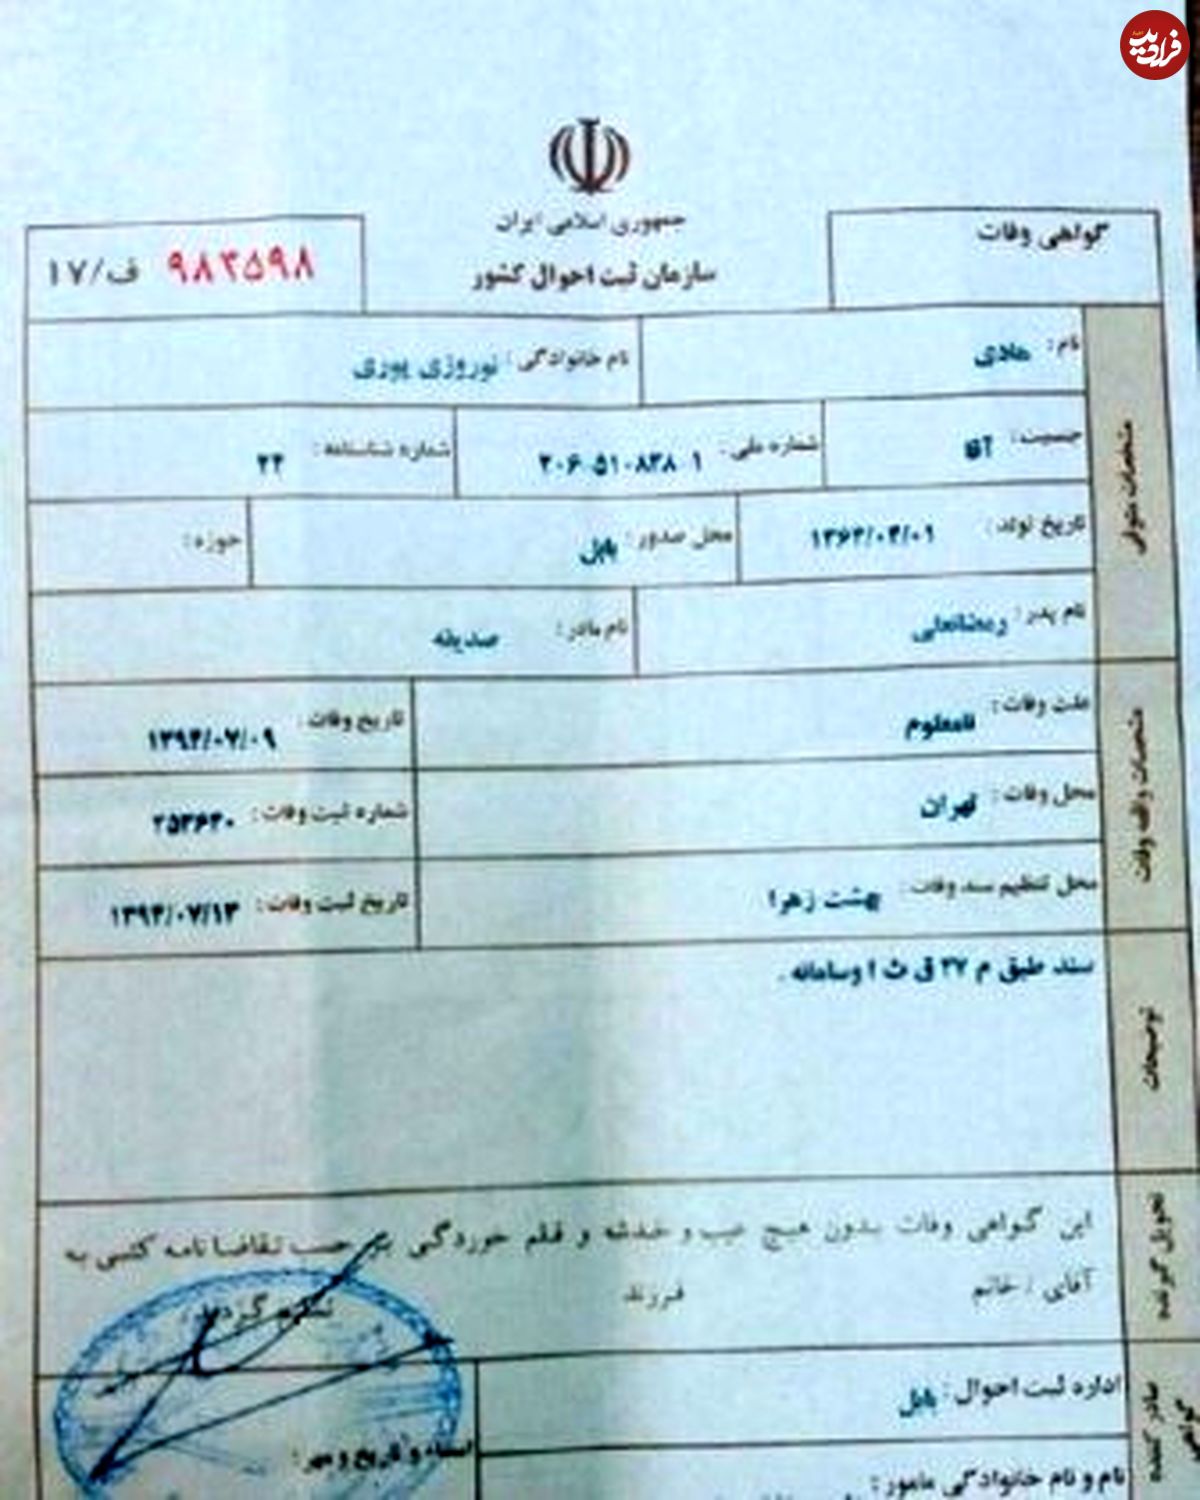 فرادید
جمهوری اسلامی ایران
سازمان ثبت احوال کشور
گواهی وفات
۹۸۳۵۹۸ ف/۱۷
نام: هادی نام خانوادگی: نوروزی پوری
جنسیت: آقا شماره ملی: شماره شناسنامه:
تاریخ تولد: محل صدور: بابل حوزه:
نام پدر: رمضانعلی نام مادر: صدیقه
مشخصات متوفی
علت وفات: نامعلوم تاریخ وفات: ۱۳۹۴/۰۷/۰۹
محل وفات: تهران شماره ثبت وفات:
محل تنظیم سند وفات: بهشت زهرا تاریخ ثبت وفات: ۱۳۹۴/۰۷/۱۳
مشخصات واقعه وفات
سند طبق م ۲۷ ق ث ا وسامانه .
توضیحات
این گواهی وفات بدون هیچ عیب و خدشه و قلم خوردگی بر حسب تقاضا نامه کتبی به
آقای / خانم فرزند
تسلیم گردید.
تحویل گیرنده
اداره ثبت احوال: بابل
امضاء و تاریخ و مهر:
نام و نام خانوادگی مامور:
صادر کننده
گواهی